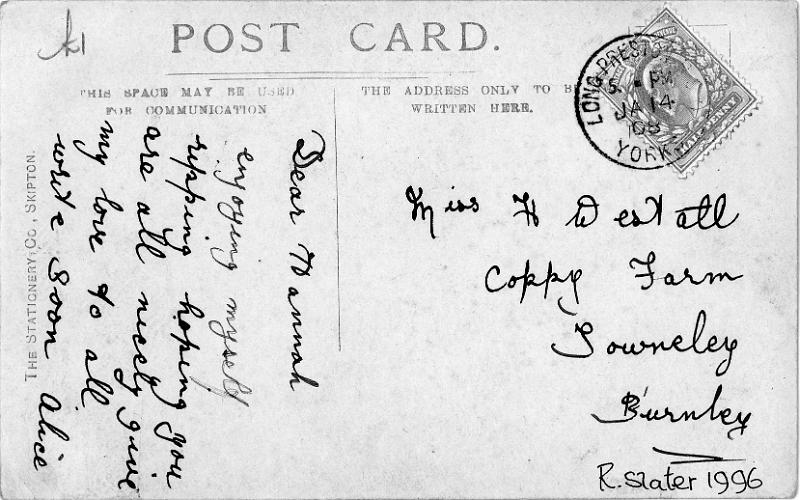 POST CARD.
THIS SPACE MAY BE USED
FOR COMMUNICATION
THE ADDRESS ONLY TO BE
WRITTEN HERE.
LONG PRESTON
5. - PM
JA 14
YORK
HALF PENNY
Dear Hannah
enjoying myself
ripping hoping you
are all nicely give
my love to all
write soon Alice
Miss H Westall
Coppy Farm
Towneley
Burnley
R. Slater 1996
THE STATIONERY Co., SKIPTON.